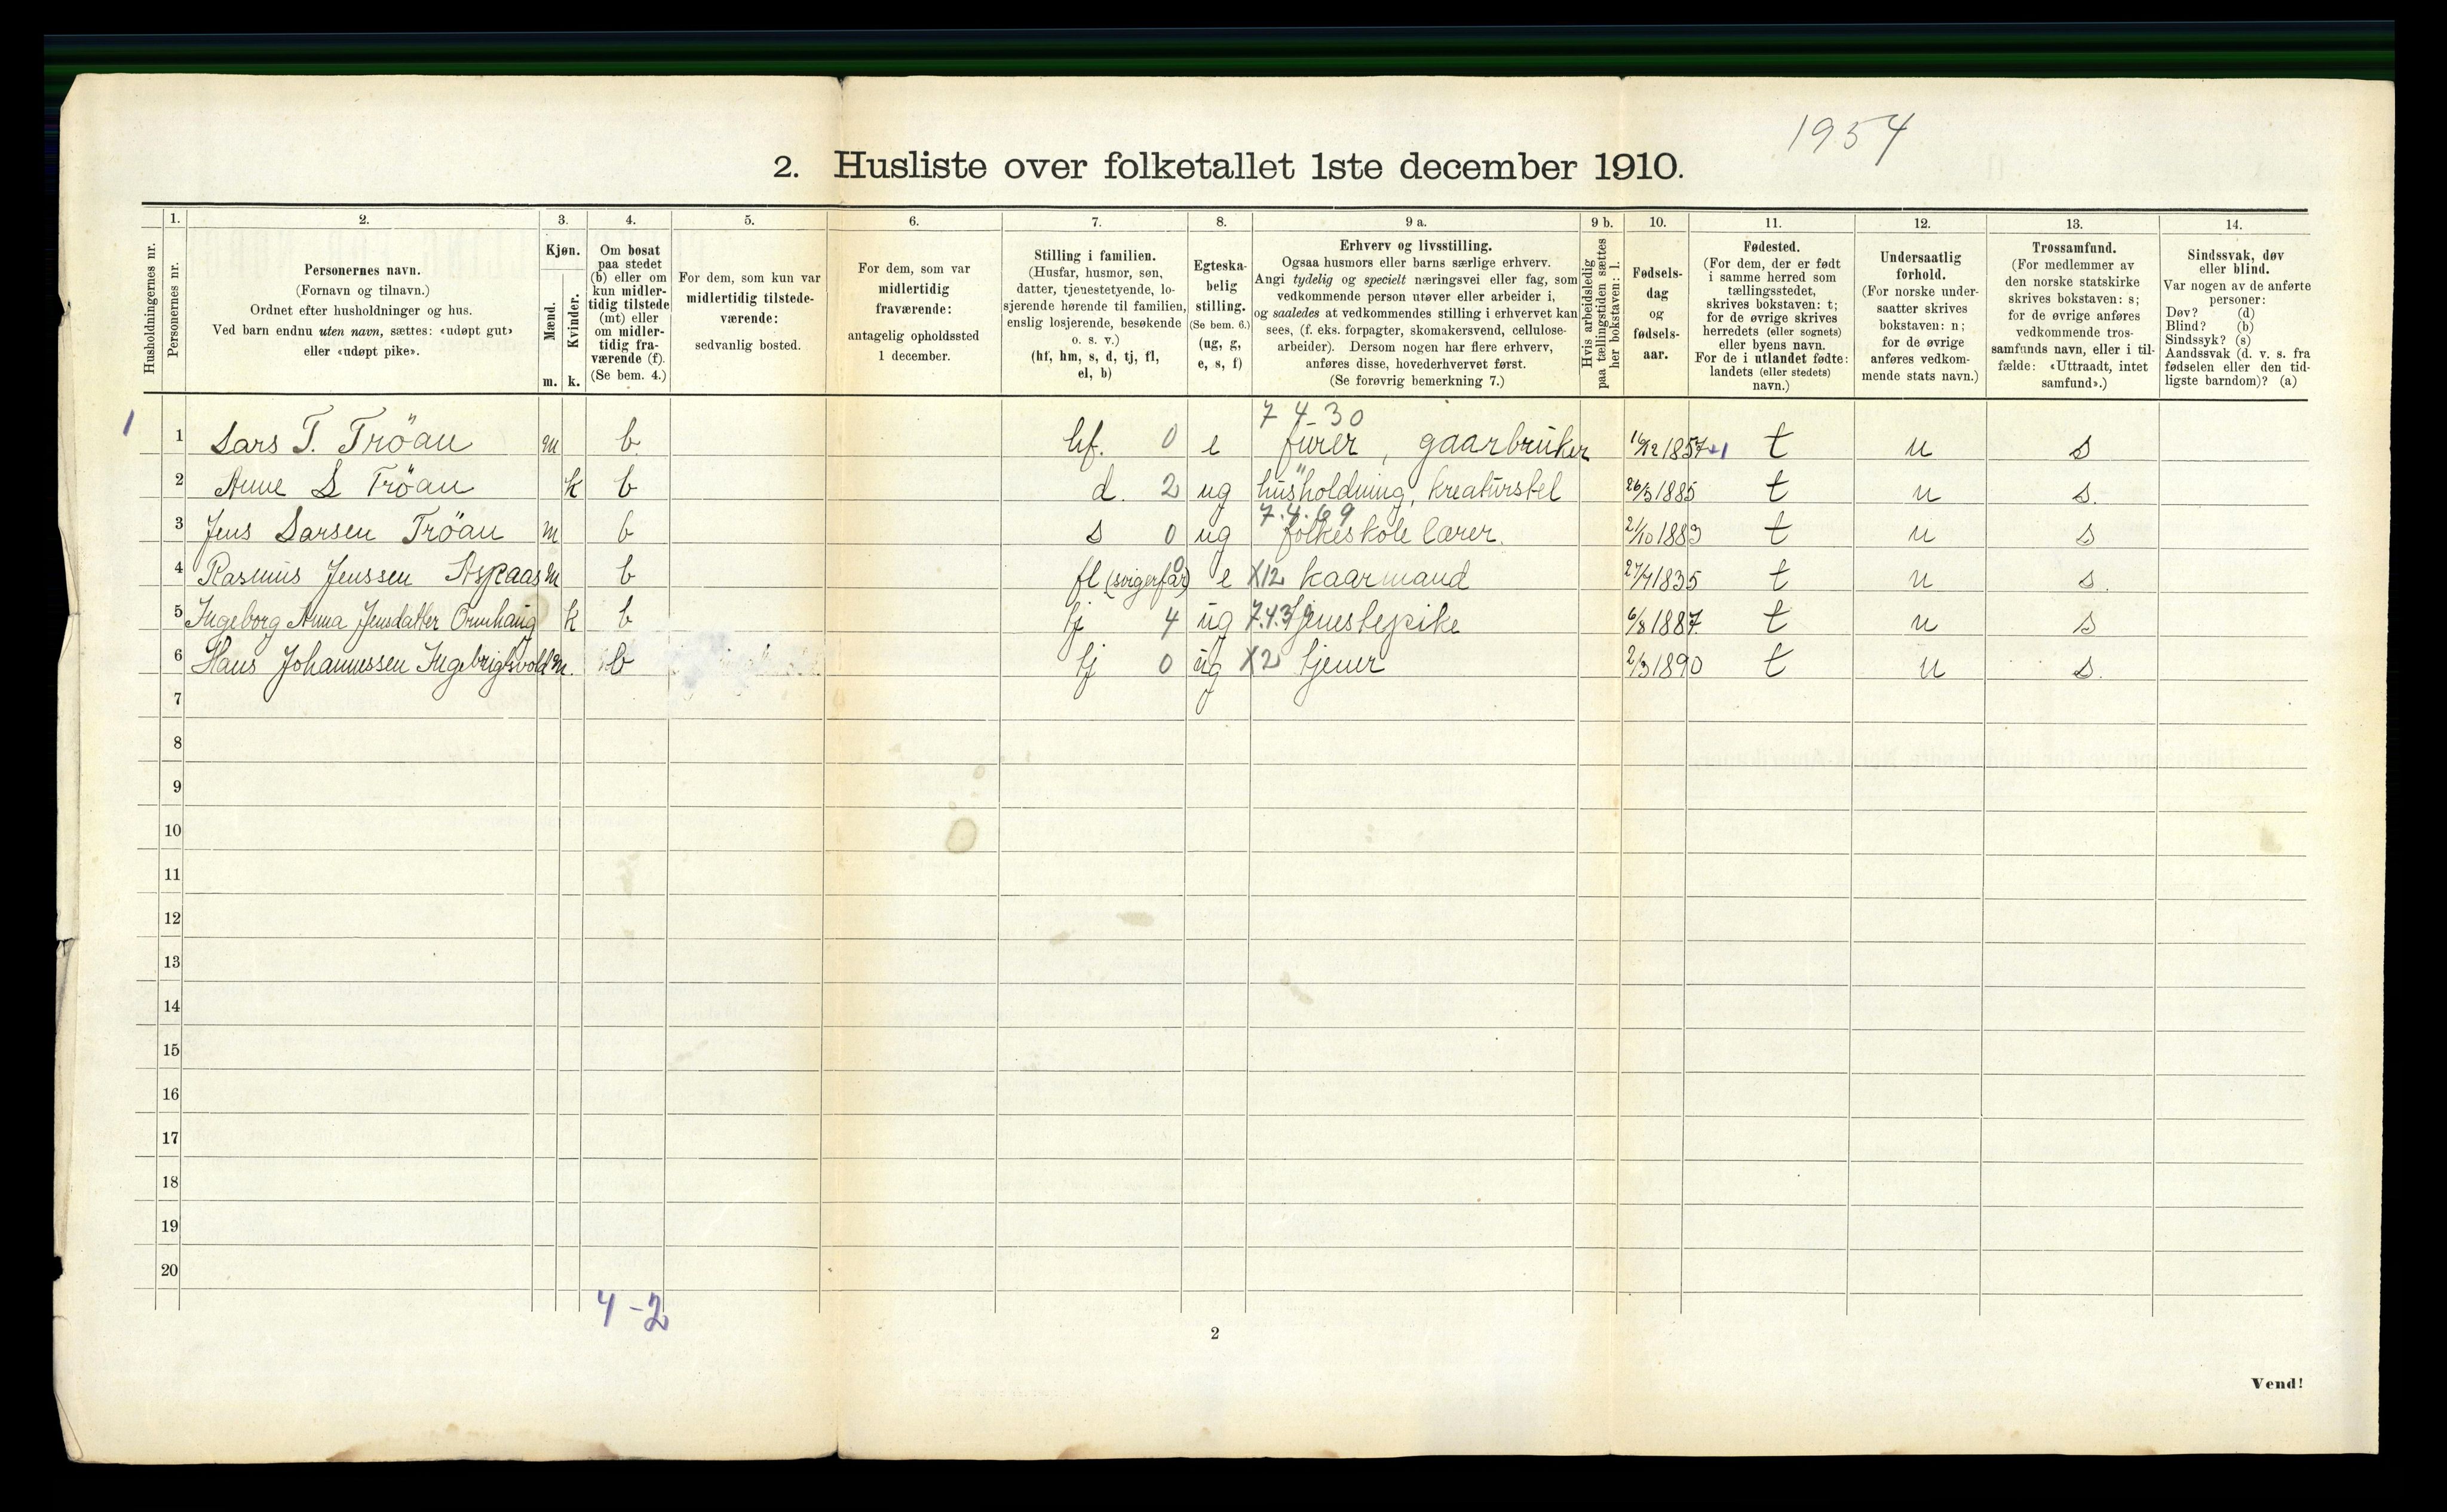 1954
2. Husliste over folketallet 1ste december 1910.
Husholdningernes nr.
1.
Personernes nr.
2.
Personernes navn.
(Fornavn og tilnavn.)
Ordnet efter husholdninger og hus.
Ved barn endnu uten navn, sættes: «udøpt gut»
eller «udøpt pike».
3.
Kjøn.
Mænd.
Kvinder.
m. k.
4.
Om bosat
paa stedet
(b) eller om
kun midler-
tidig tilstede
(mt) eller
om midler-
tidig fra-
værende (f).
(Se bem. 4.)
5.
For dem, som kun var
midlertidig tilstede-
værende:
sedvanlig bosted.
6.
For dem, som var
midlertidig
fraværende:
antagelig opholdssted
1 december.
7.
Stilling i familien.
(Husfar, husmor, søn,
datter, tjenestetyende, lo-
sjerende hørende til familien,
enslig losjerende, besøkende
o. s. v.)
(hf, hm, s, d, tj, fl,
el, b)
8.
Egteska-
belig
stilling.
(Se bem. 6.)
(ug, g,
e, s, f)
9 a.
Erhverv og livsstilling.
Ogsaa husmors eller barns særlige erhverv.
Angi tydelig og specielt næringsvei eller fag, som
vedkommende person utøver eller arbeider i,
og saaledes at vedkommendes stilling i erhvervet kan
sees, (f. eks. forpagter, skomakersvend, cellulose-
arbeider). Dersom nogen har flere erhverv,
anføres disse, hovederhvervet først.
(Se forøvrig bemerkning 7.)
9 b.
Hvis arbeidsledig
paa tællingstiden sættes
her bokstaven: l.
10.
Fødsels-
dag
og
fødsels-
aar.
11.
Fødested.
(For dem, der er født
i samme herred som
tællingsstedet,
skrives bokstaven: t;
for de øvrige skrives
herredets (eller sognets)
eller byens navn.
For de i utlandet fødte:
landets (eller stedets)
navn.)
12.
Undersaatlig
forhold.
(For norske under-
saatter skrives
bokstaven: n;
for de øvrige
anføres vedkom-
mende stats navn.)
13.
Trossamfund.
(For medlemmer av
den norske statskirke
skrives bokstaven: s;
for de øvrige anføres
vedkommende tros-
samfunds navn, eller i til-
fælde: «Uttraadt, intet
samfund».)
14.
Sindssvak, døv
eller blind.
Var nogen av de anførte
personer:
Døv? (d)
Blind? (b)
Sindssyk? (s)
Aandssvak (d. v. s. fra
fødselen eller den tid-
ligste barndom)? (a)
7 4-30
1 1 Lars T. Tröan m b. hf. 0 e furer, gaarbruker 16/12 1857 +1 t n s
2 Anne L Tröan k b d. 2 ug husholdning, kreaturstel 26/3 1885 t n s.
7.4.69
3 Jens Larsen Tröan m b s 0 ug folkeskole lærer. 21/10 1883 t n s
4 Rasmus Jenssen Aspaas m b fl (svigerfar) 0 e X12 kaarmand 27/4 1835 t n s.
5 Ingeborg Anna Jensdatter Ormhaug k b tj 4 ug 7.4.3 tjenestepike 6/8 1887. t n s
6 Hans Johannessen Ingebrigtsvold m. b tj 0 ug X2 tjener 2/3 1890 t n s.
7
8
9
10
11
12
13
14
15
16
17
18
19
20
4-2
2
Vend!